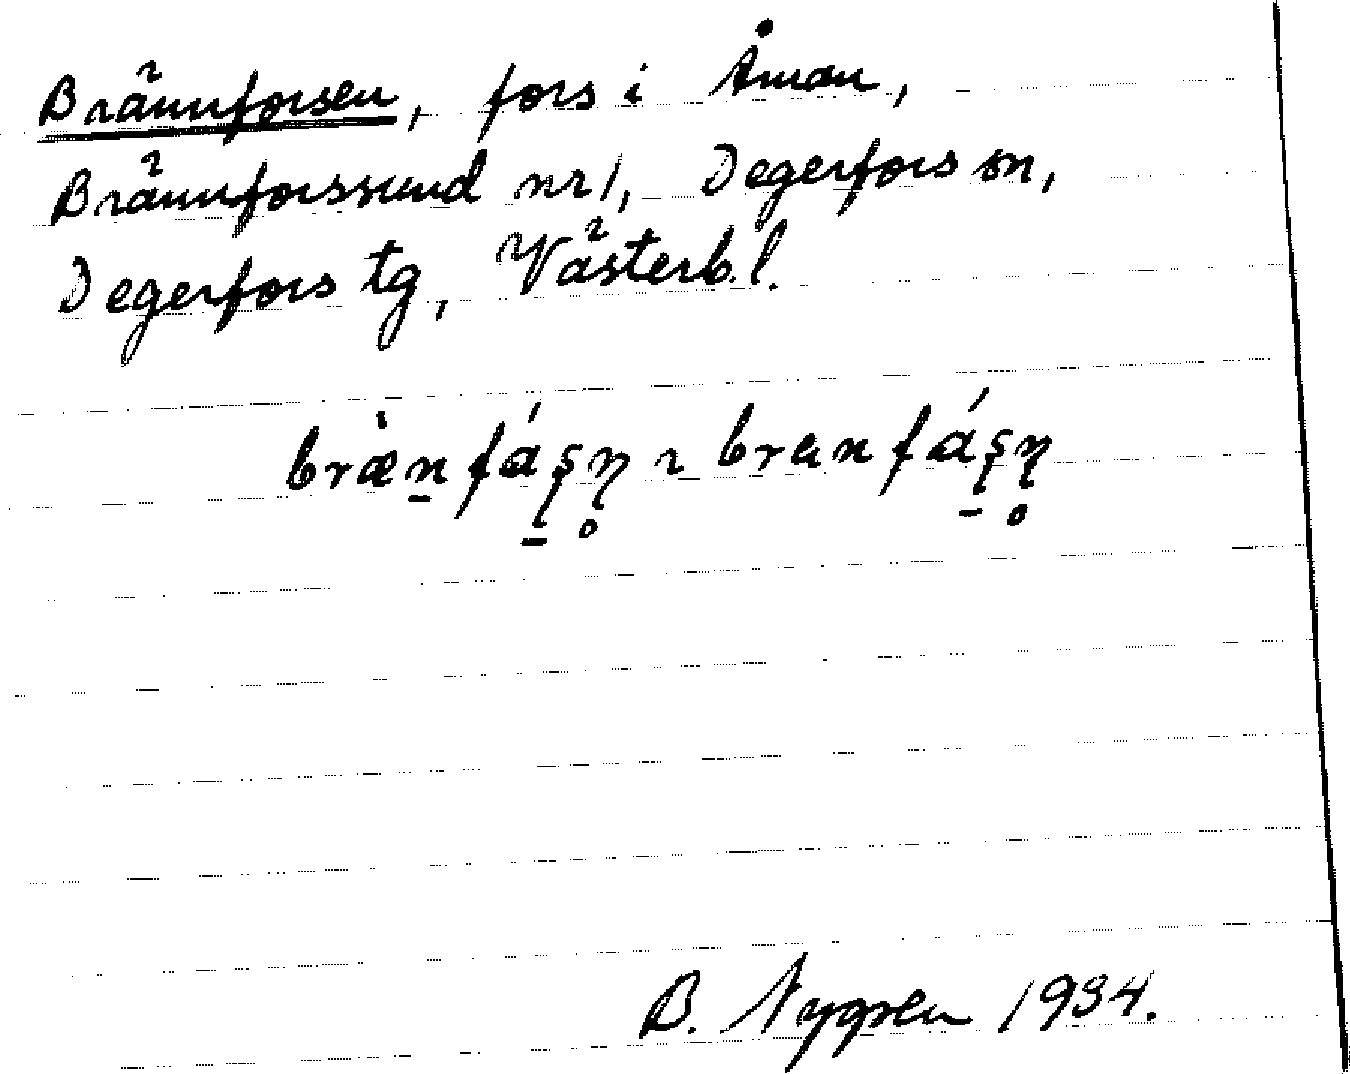 Brännforsen, fors i Åman,
Brännforssund nr 1, Degerfors sn,
Degerfors tg, Västerb. l.
bræ̀n̠fáʂ̠ɳ̥ ɩ branfáʂ̠ɳ̥
B. Nygren 1934.